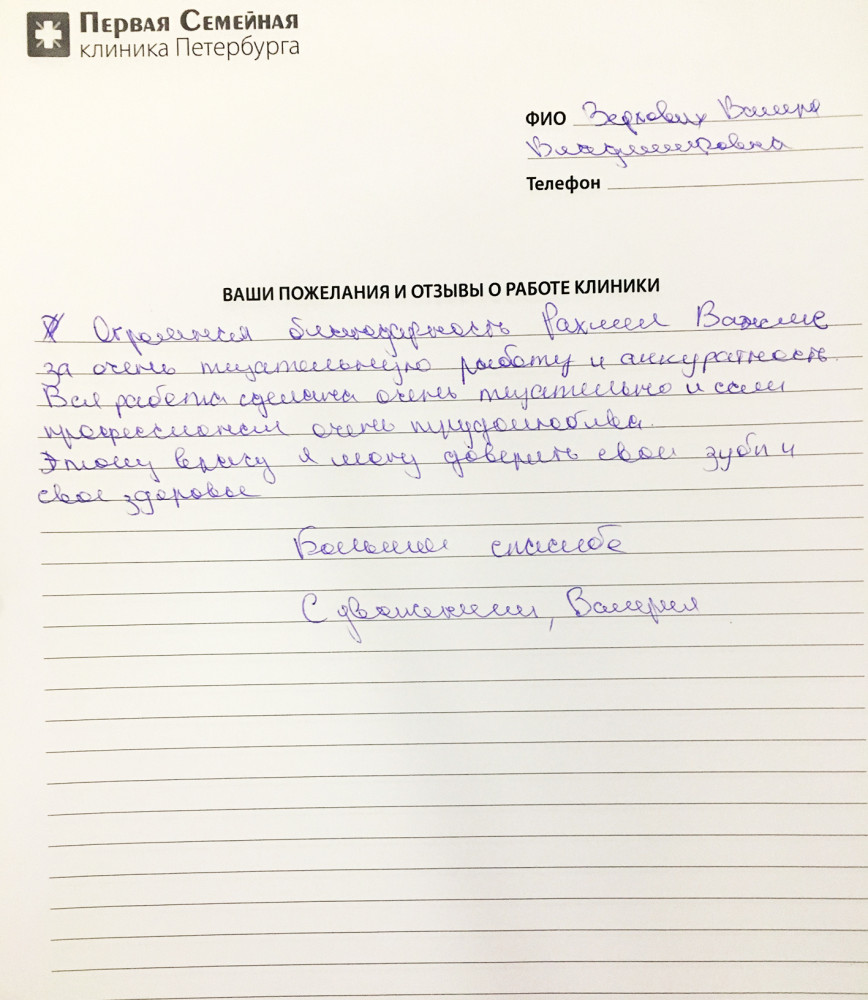 Первая Семейная
клиника Петербурга
ФИО Зеркович Валерия
Владимировна
Телефон
ВАШИ ПОЖЕЛАНИЯ И ОТЗЫВЫ О РАБОТЕ КЛИНИКИ
Огромная благодарность
за очень тщательную работу и аккуратность.
Вся работа сделана очень тщательно и сам
профессионал очень трудолюбива.
Этому врачу я могу доверить свои зубы и
свое здоровье
Большое спасибо
С уважением, Валерия